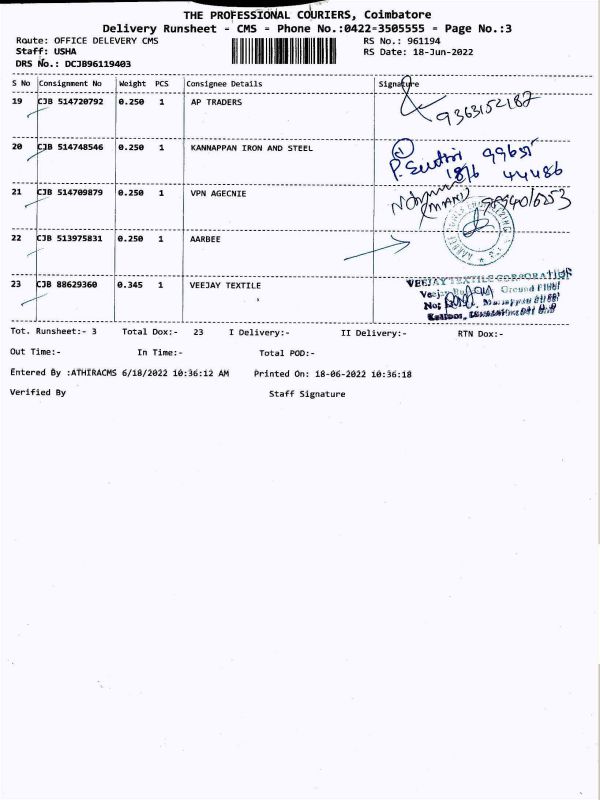 THE PROFESSIONAL COURIERS, Coimbatore
Delivery Runsheet - CMS - Phone No.:0422-3505555 - Page No.:3
Route: OFFICE DELEVERY CMS
RS No.: 961194
Staff: USHA
RS Date: 18-Jun-2022
DRS No.: DCJB96119403
S No Consignment No Weight PCS Consignee Details Signature
19 CJB 514720792 0.250 1 AP TRADERS
9363152187
20 CJB 514748546 0.250 1 KANNAPPAN IRON AND STEEL
99651
18/6 44486
21 CJB 514709879 0.250 1 VPN AGECNIE
(MANI)
22 CJB 513975831 0.250 1 AARBEE
23 CJB 88629360 0.345 1 VEEJAY TEXTILE
VEEJAY TEXTILE CORPORATION
Ground Floor
Tot. Runsheet:- 3 Total Dox:- 23 I Delivery:- II Delivery:- RTN Dox:-
Out Time:- In Time:- Total POD:-
Entered By :ATHIRACMS 6/18/2022 10:36:12 AM Printed On: 18-06-2022 10:36:18
Verified By Staff Signature